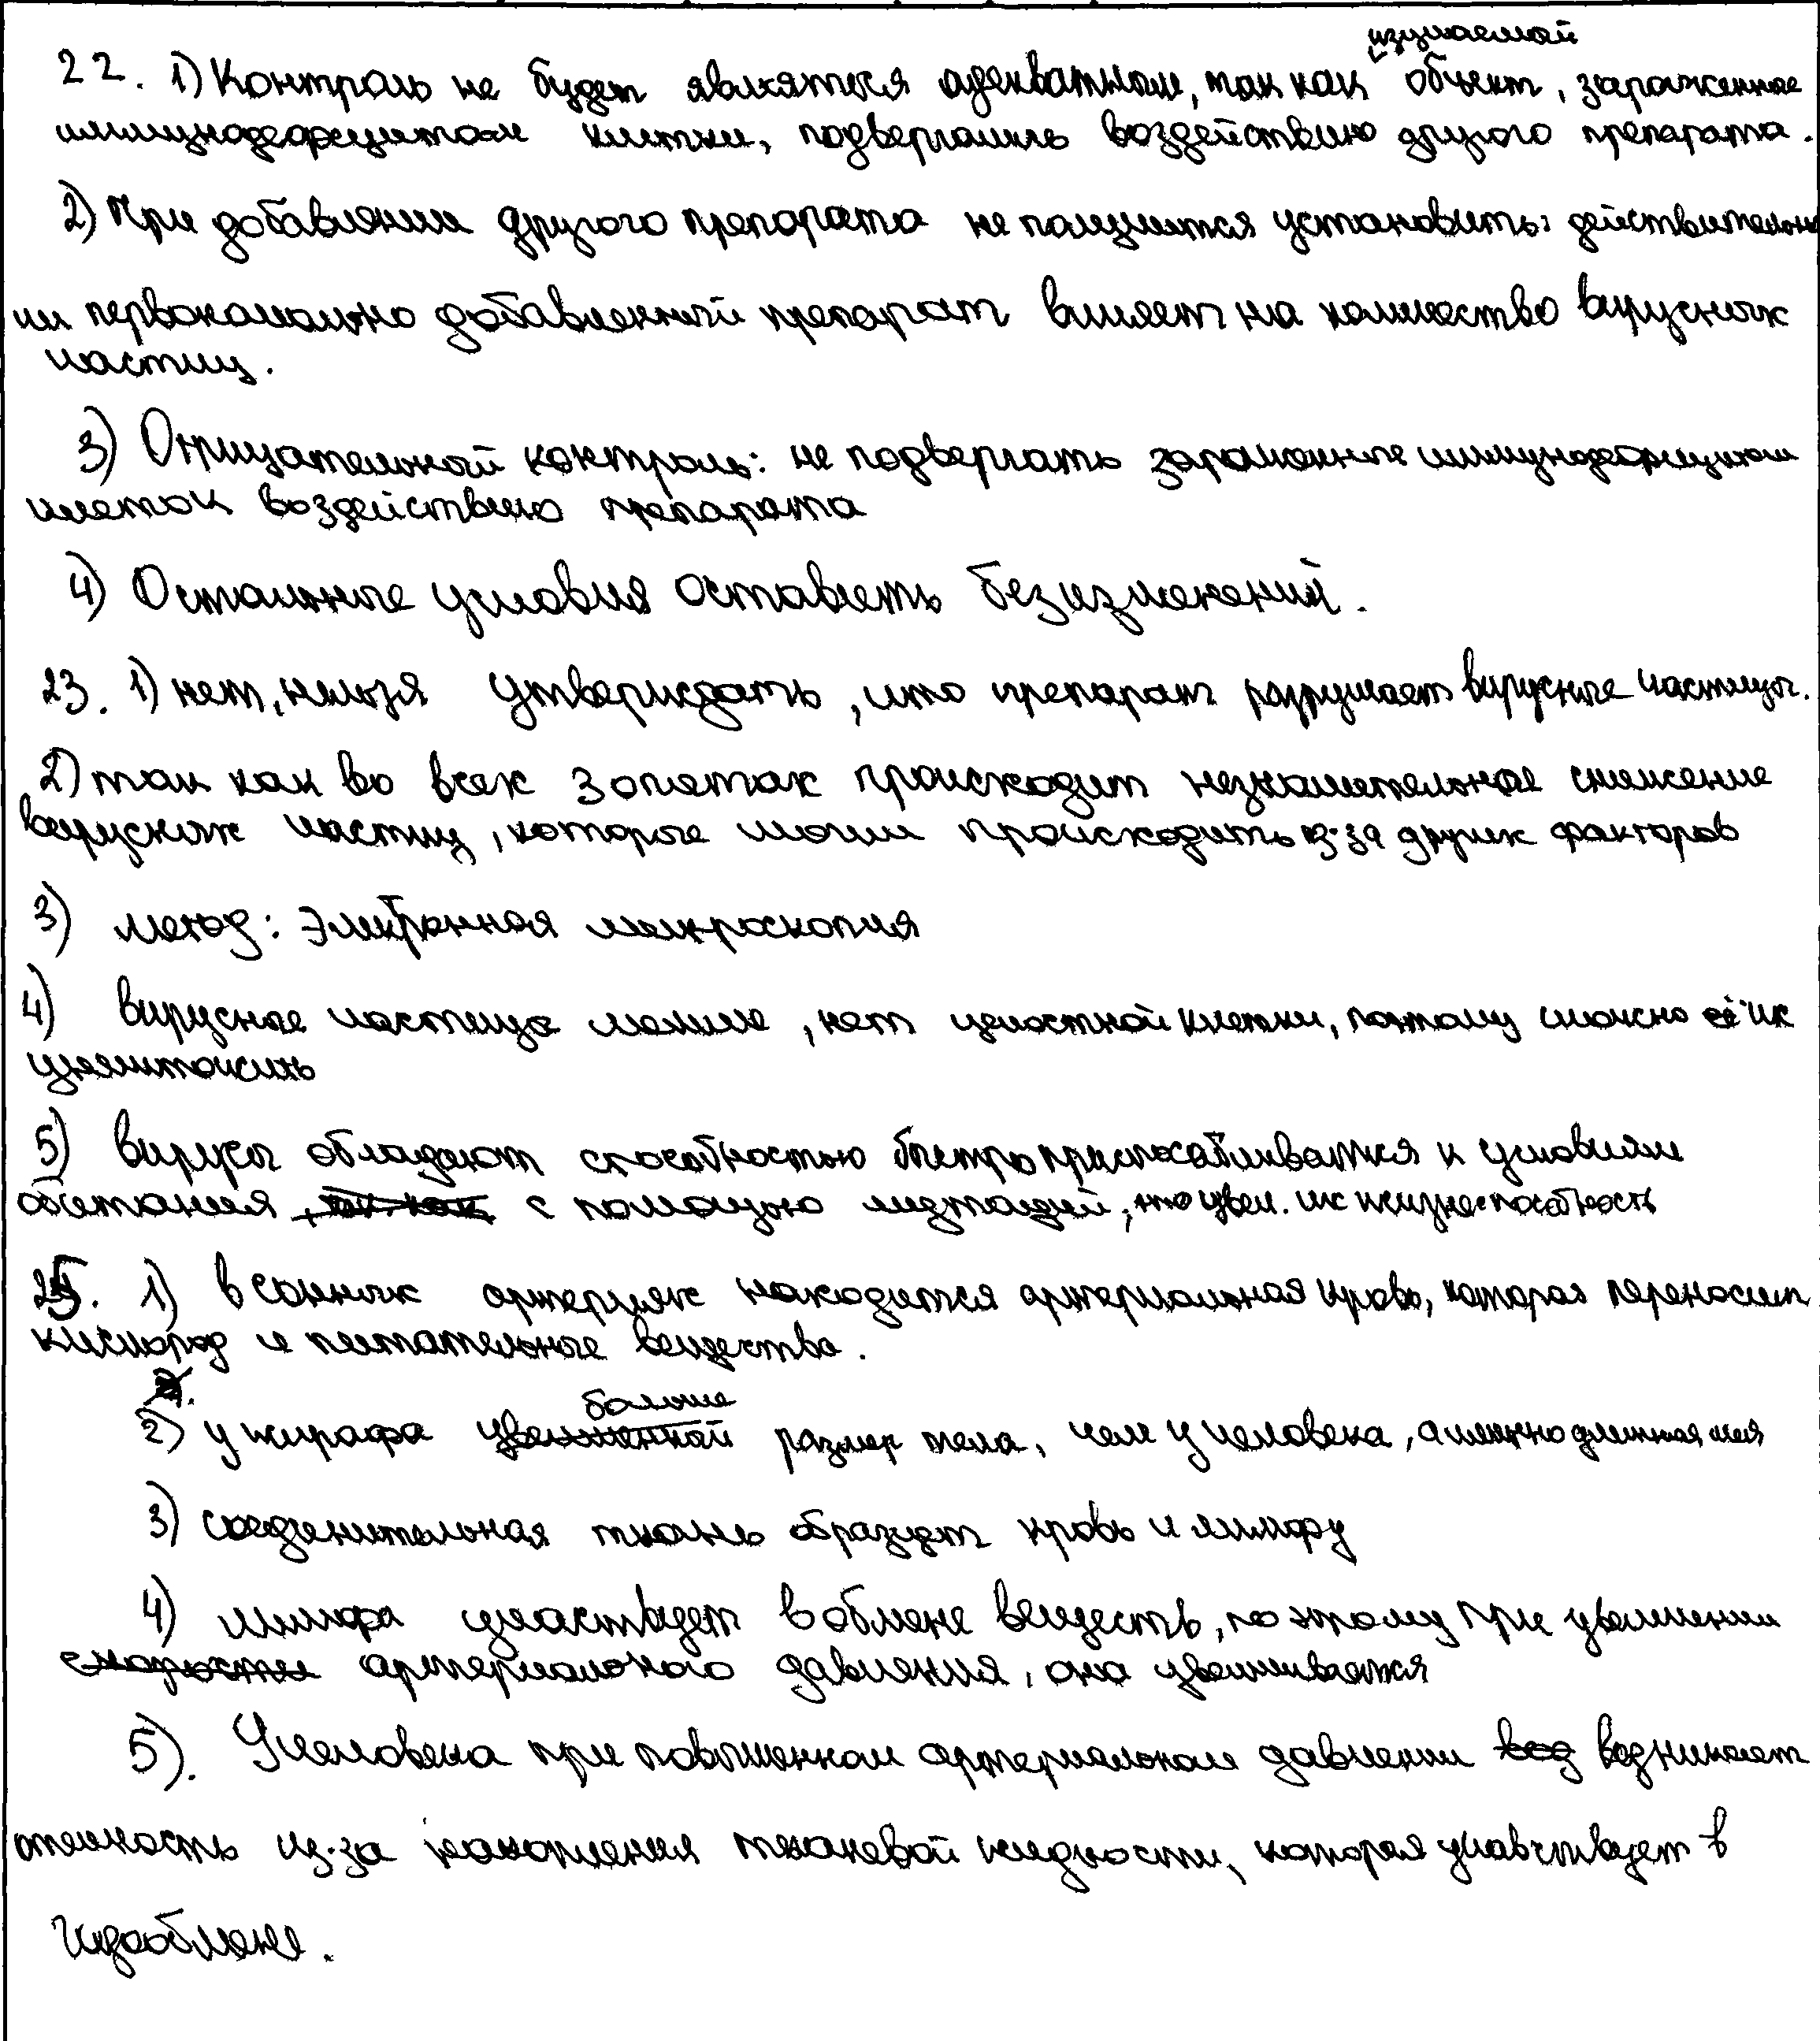 изучаемый
22. 1) Контроль не будет являться адекватным, так как объект, зараженные
иммунодефицитом клетки, подвергались воздействию другого препарата.
2) При добавлении другого препарата не получится установить: действительно
ли первоначально добавленный препарат влияет на количество вирусных
частиц.
3) Отрицательный контроль: не подвергать зараженные иммунодефицитом
клеток воздействию препарата
4) Остальные условия оставить без изменений.
23. 1) нет, нельзя утверждать, что препарат разрушает вирусные частицы.
2) так как во всех 3 опытах происходит незначительное снижение
вирусных частиц, которые могли происходить из-за других факторов
3) метод: Электронная микроскопия
4) вирусные частицы мелкие, нет целостной клетки, поэтому сложно её их
уничтожить
5) вирусы обладают способностью быстро приспосабливаться к условиям
обитания, так как с помощью мутаций, что увел. их жизнеспособность
25. 1) в сонных артериях находится артериальная кровь, которая переносит
кислород и питательные вещества.
2.
больше
2) у жирафа увеличенный размер тела, чем у человека, а именно длинная шея
3) соединительная ткань образует кровь и лимфу
4) лимфа участвует в обмене веществ, по этому при увеличении
скорости артериального давления, она увеличивается
5). У человека при повышенном артериальном давлении воз возникает
отечность из-за накопления тканевой жидкости, которая учавствует в
газообмене.